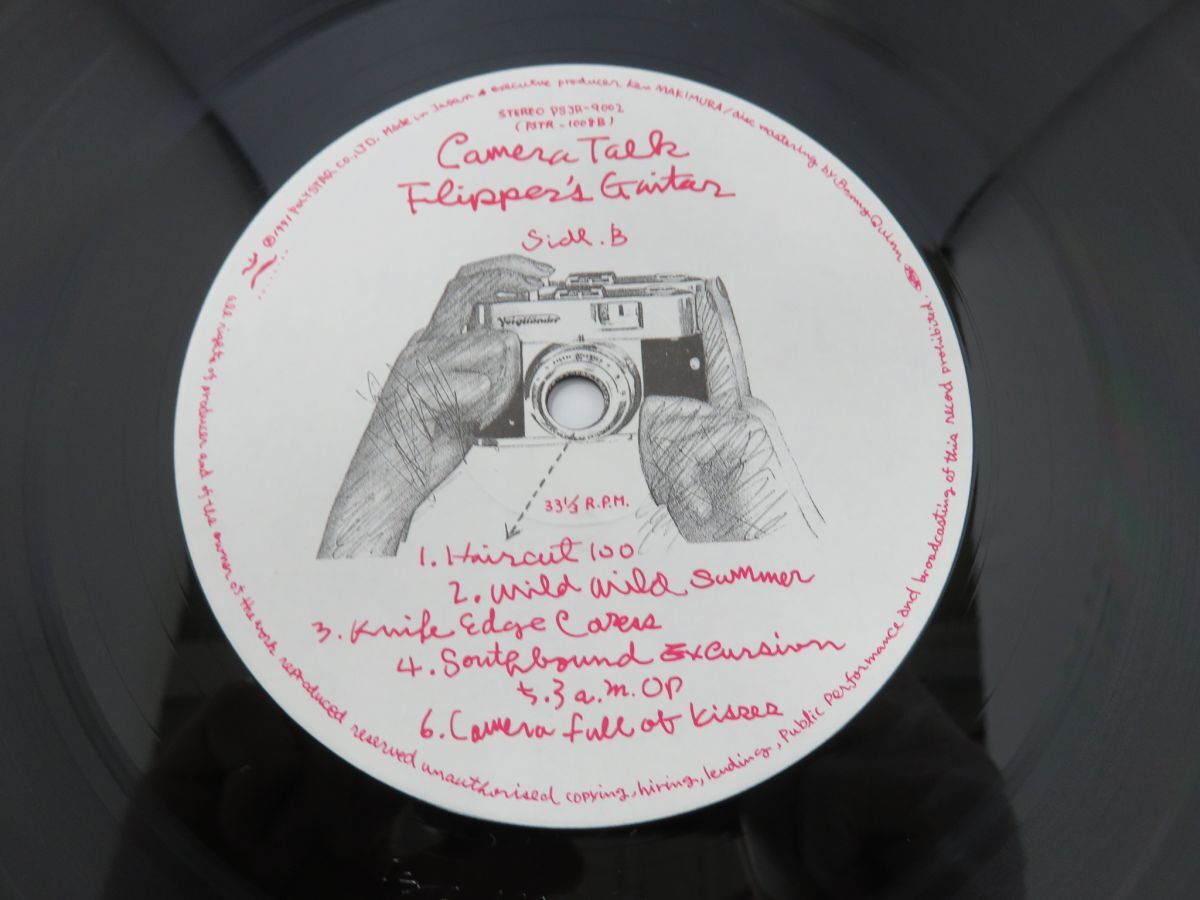 ℗1991 POLYSTAR CO., LTD. Made in Japan executive producer Ken MAKIMURA/disc mastering by Benny Quinn
STEREO PSJR-9002
(PSTR-1008B)
Camera Talk
Flipper's Guitar
Side.B
Voigtländer
33⅓ R.P.M.
1. Haircut 100
2. Wild Wild Summer
3. Knife Edge Caress
4. Southbound Excursion
5. 3 a.m. OP
6. Camera full of kisses
all rights of producer and of the owner of the work reproduced reserved unauthorised copying, hiring, lending, public performance and broadcasting of this record prohibited.